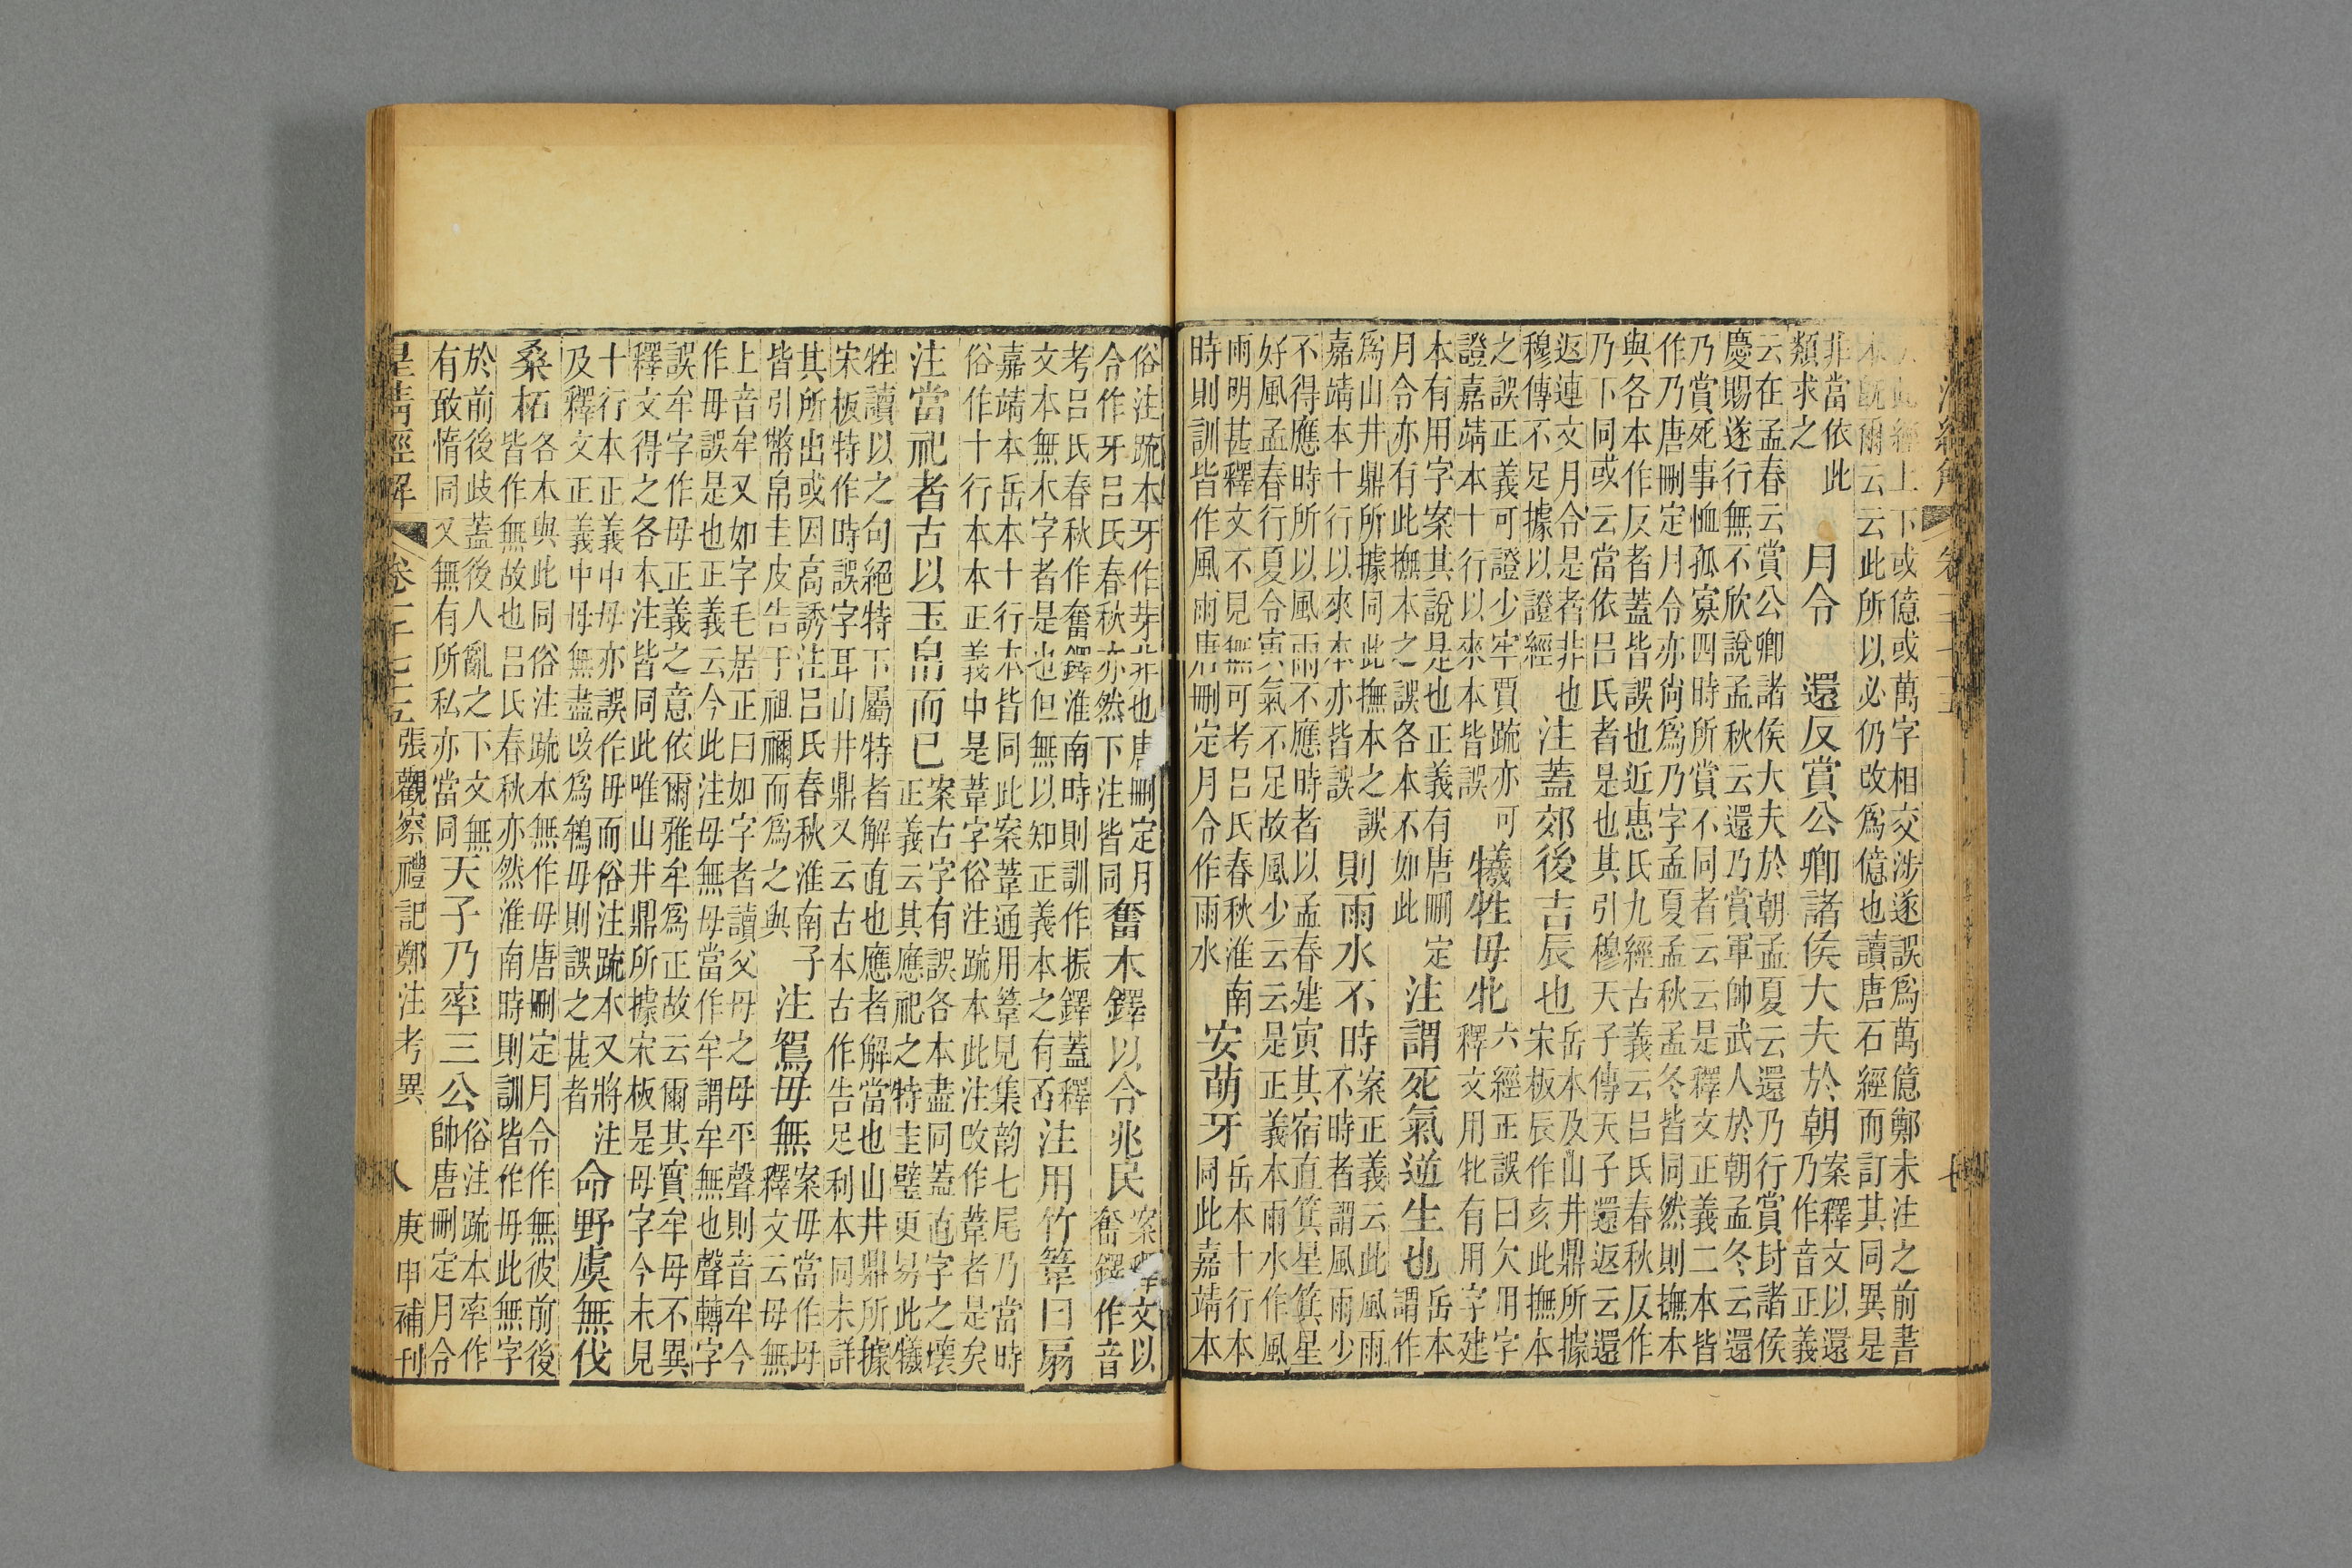 上下或億或萬字相交涉遂誤爲萬億鄭未注之前書
本既爾云云此所以必仍改爲億也讀唐石經而訂其同異是
非當依此
類求之
月令 還反賞公卿諸侯大夫於朝
案釋文以還
乃作音正義
云在孟春云賞公卿諸侯大夫於朝孟夏云還乃行賞封諸侯
慶賜遂行無不欣說孟秋云還乃賞軍帥武人於朝孟冬云還
乃賞死事恤孤寡四時所賞不同者云云是釋文正義二本皆
作乃唐刪定月令亦尙爲乃字孟夏孟秋孟冬皆同然則撫本
與各本作反者蓋皆誤也近惠氏九經古義云呂氏春秋反作
乃下同或云當依呂氏者是也其引穆天子傳天子還返云還
返連文月令是者非也
穆傳不足據以證經
注蓋郊後吉辰也
岳本及山井鼎所據
宋板辰作亥此撫本
之誤正義可證少牢賈疏亦可
證嘉靖本十行以來本皆誤
犧牲毋牝
六經正誤曰欠用字
釋文用牝有用字建
本有用字案其說是也正義有唐刪定
月令亦有此撫本之誤各本不如此
注謂死氣逆生也
岳本
謂作
爲山井鼎所據同此撫本之誤
嘉靖本十行以來本亦皆誤
則雨水不時
案正義云此風雨
不時者謂風雨少
不得應時所以風雨不應時者以孟春建寅其宿直箕星箕星
好風孟春行夏令寅氣不足故風少云云是正義本雨水作風
雨明甚釋文不見無可考呂氏春秋淮南
時則訓皆作風雨唐刪定月令作雨水
安萌牙
岳本十行本
同此嘉靖本
俗注疏本牙作芽非也唐刪定月
令作牙呂氏春秋亦然下注皆同
奮木鐸以令兆民
案釋文以
奮鐸作音
考呂氏春秋作奮鐸淮南時則訓作振鐸蓋釋
文本無木字者是也但無以知正義本之有否
注用竹曰扇
嘉靖本岳本十行本皆同此案葦通用見集韵七尾乃當時
俗作十行本本正義中是葦字俗注疏本此注改作葦者是矣
注當祀者古以玉帛而已
案古字有誤各本盡同蓋直字之壞
正義云其應祀之特圭璧更易此犧
牲讀以之句絕特下屬特者解直也應者解當也山井鼎所據
宋板特作時誤字耳山井鼎又云古本古作告足利本同未詳
其所出或因高誘注呂氏春秋淮南子
皆引幣帛圭皮告于祖禰而爲之與
注鴽毋無
案毋當作母
釋文云母無
上音牟又如字毛居正曰如字者讀父母之母平聲則音牟今
作毋誤是也正義云今此注母無母當作牟謂牟無也聲轉字
誤牟字作母正義之意依爾雅牟爲正故云爾其實牟母不異
釋文得之各本注皆同此唯山井鼎所據宋板是母字今未見
十行本正義中母亦誤作毋而俗注疏本又將注
及釋文正義中母無盡改爲鴾母則誤之甚者
命野虞無伐
桑柘
各本與此同俗注疏本無作毋唐刪定月令作無彼前後
皆作無故也呂氏春秋亦然淮南時則訓皆作毋此無字
於前後歧蓋後人亂之下文無
有敢惰同又無有所私亦當同
天子乃率三公
俗注疏本率作
帥唐刪定月令
皇清經解 卷一千七十五 張觀察禮記鄭注考異 八 庚申補刊